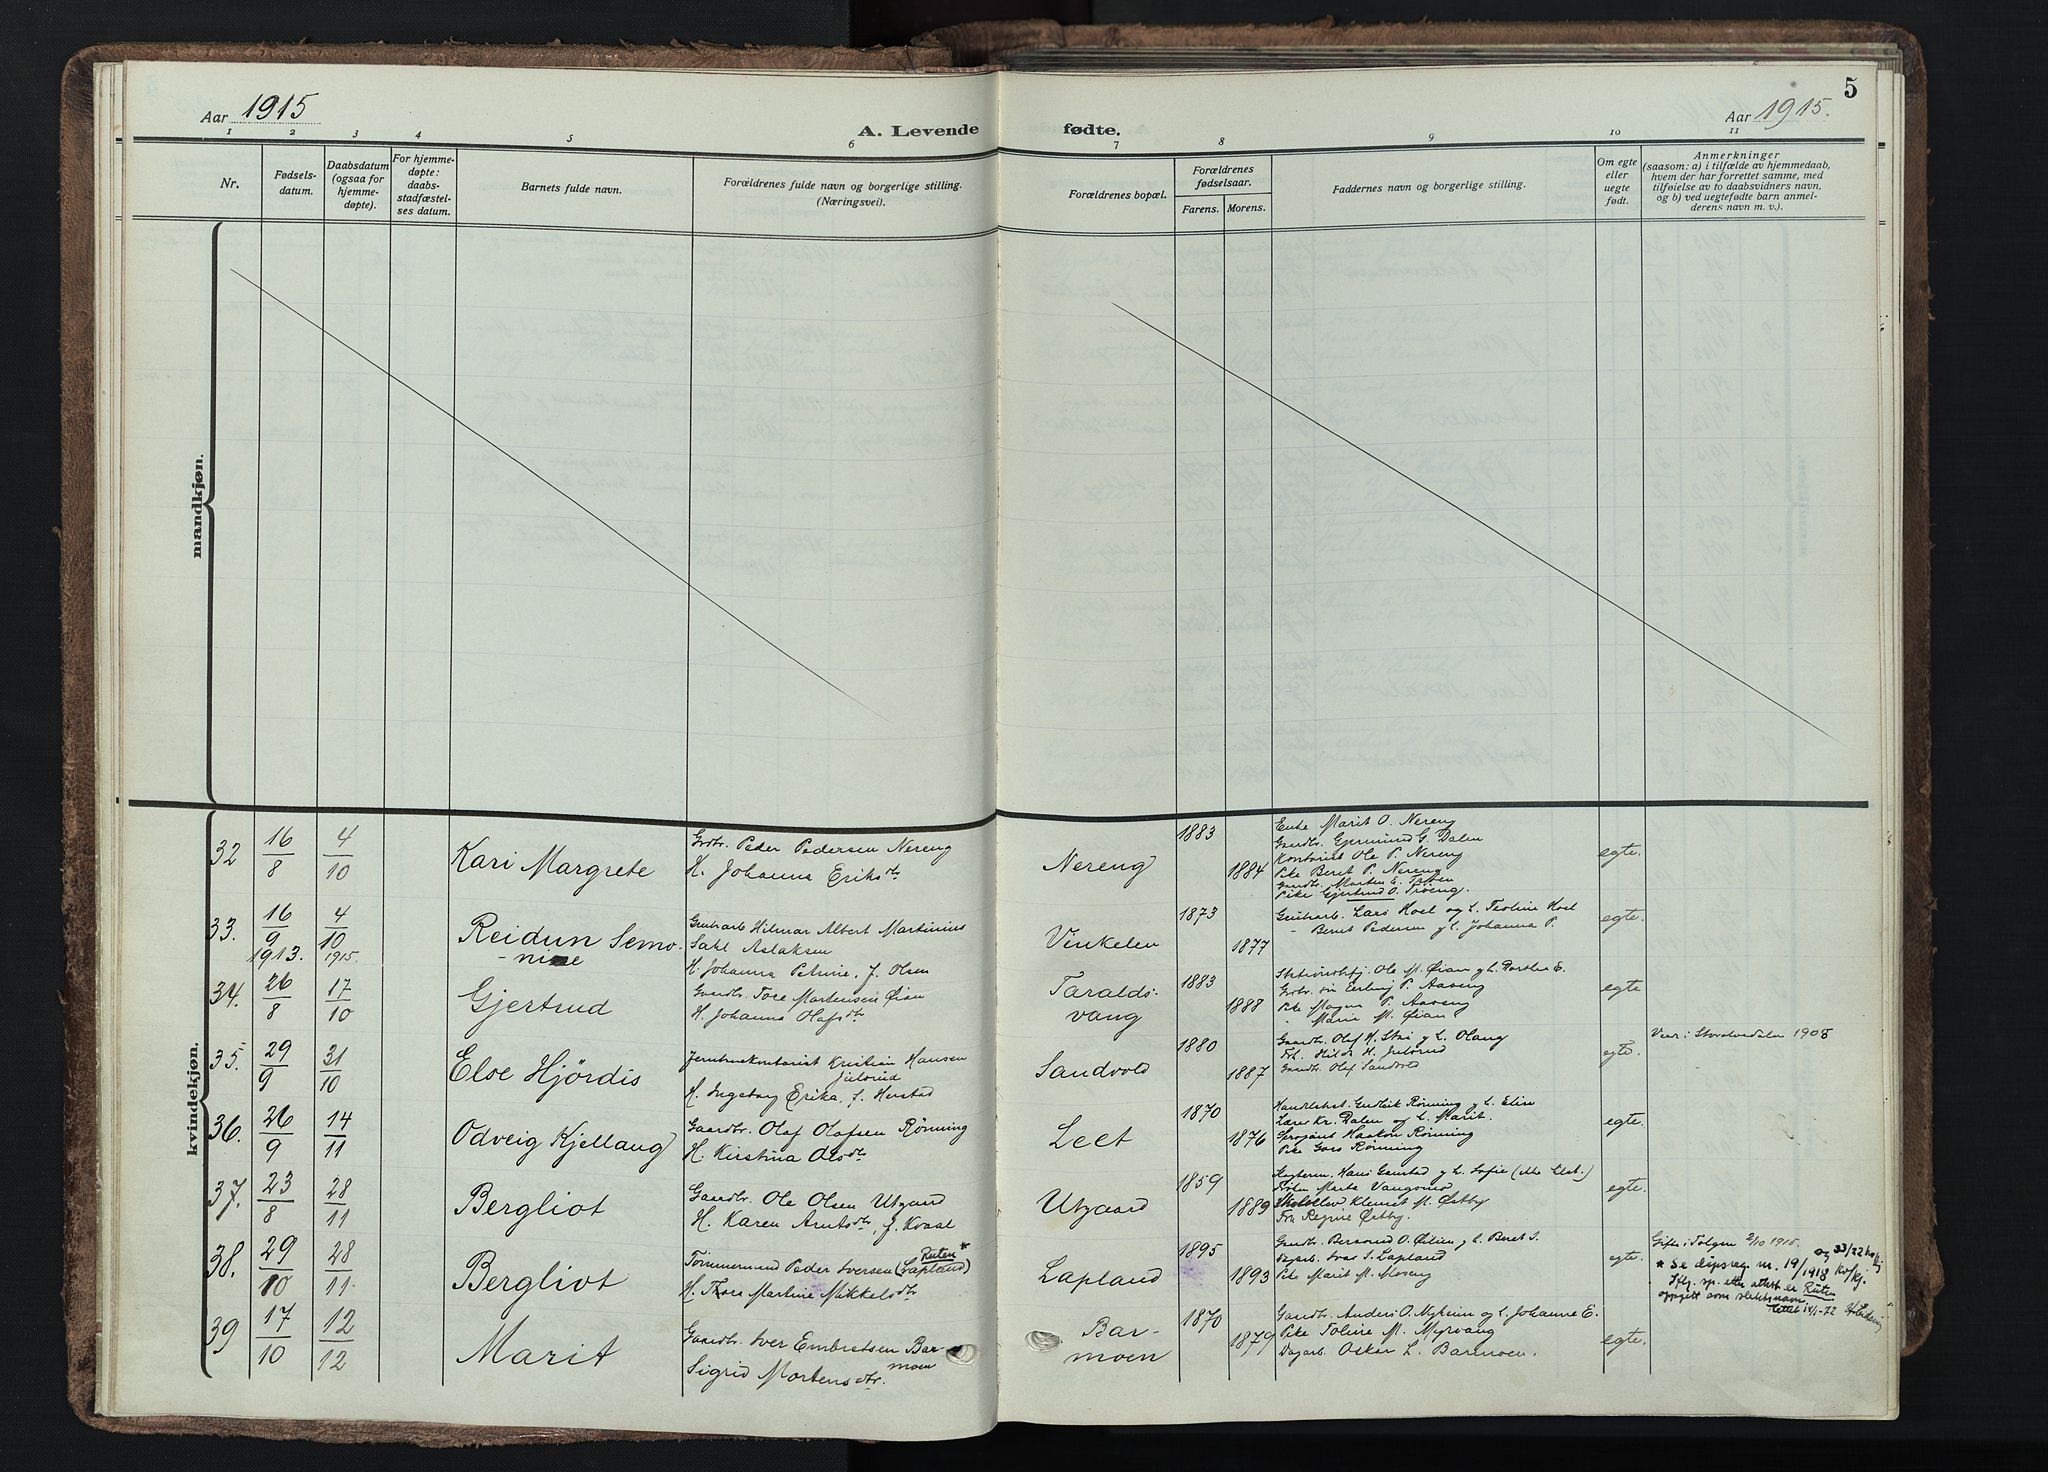 Aar 1915
A. Levende
fødte.
Aar 1915.
5
1 2 3 4 5 6 7 8 9 10 11
Nr.
Fødsels-
datum.
Daabsdatum
(ogsaa for
hjemme-
døpte).
For hjemme-
døpte:
daabs-
stadfæstel-
ses datum.
Barnets fulde navn.
Forældrenes fulde navn og borgerlige stilling.
(Næringsvei).
Forældrenes bopæl.
Forældrenes
fødselsaar.
Farens. Morens.
Faddernes navn og borgerlige stilling.
Om egte
eller
uegte
født.
Anmerkninger
(saasom: a) i tilfælde av hjemmedaab,
hvem der har forrettet samme, med
tilføielse av to daabsvidners navn,
og b) ved uegtefødte barn anmel-
derens navn m. v.).
mandkjøn.
kvindekjøn.
32
16/8
4/10
Kari Margrete
Grdbr. Peder Pedersen Nereng
H. Johanna Eriksdtr
Nereng
1883
1884
Enke Marit O. Nereng
Gaardbr. Gjermund G. Dalen
Kontorist Ole P. Nereng
Pike Beret P. Nereng
Gaardbr. Morten E.
Pike Gjertrud O. Trøeng.
egte.
33.
16/9
1913.
4/10
1915.
Reidun Semo-
-nine
Gruvearb Hilmar Albert Martinius
Dahl Aslaksen
H. Johanna Petrine, f. Olsen
Vinkelen
1873
1877
Gruvearb. Lars Hoel og h. Tioline Hoel
" Bernt Pedersen og h. Johanna P.
egte.
34.
26/8
17/10
Gjertrud
Gaardbr. Tore Mortensen Øian
H. Johanna Olafsdtr
Taralds-
vang
1883
1888
Stationsbetj. Ole M. Øian og h. Dorthea E.
Grdbr. søn Erling P. Aaseng
Pike Magna P. Aaseng
" Marie M. Øian
egte
35.
29/9
31/10
Else Hjördis
Jernbanekontorist Kristian Hansen
Julsrud
H. Ingeborg Erika, f. Herstad
Sandvold
1880
1887
Gaardbr. Olaf H. Stai og h. Olaug
Frk. Hilda H. Julsrud
Gaardbr. Olaf Sandvold
egte.
Viet i Storelvedalen 1908
36.
26/9
14/11
Odveig Kjellaug
Gaardbr. Olaf Olafsen Rønning
H. Kirstina Olsdtr
Leet
1870
1876
Handelsbest. Gudleik Rønning og h. Elise
Lærer Kr. Dalen og h. Marit.
Sergeant Haakon Rønning
Pike Goro Rønning
egte.
37.
23/8
28/11
Bergliot
Gaardbr. Ole Olsen Utgaard
H. Karen Arntsdtr, f. Kvaal
Utgaard
1859
1889
Hans Ganstad og h. Sofie
Frøken Marte Vangsmo
Klemet M. Østby
Fru Regine Østby.
egte.
38.
29/10
28/11.
Bergliot
Ruten*
Tömmermand Peder Iversen (Lapland)
H. Thora Martine Mikkelsdtr
Lapland
1895
1893
Gaardbr. Bersvend O. Øilien og h. Beret S.
Dagarb. Ivar S. Lapland
Pike Marit M. Moseng
egte.
Gifte i Tolgen 2/10 1915.
og 33/22 kv/kj
* Se dåpsreg. nr. 19/1918 kv/kj.
Iflg. sp. etter attest er Ruten
oppgitt som slektsnavn
39
17/10
12/12
Marit
Gaardbr. Iver Embretsen Bar-
moen
Sigrid Mortensdtr.
Bar-
moen
1870
1879
Gaardbr. Anders O. Myhren og h. Johanne E.
Pike Toline M. Myrvang
Dagarb. Oskar L. Barmoen.
egte.